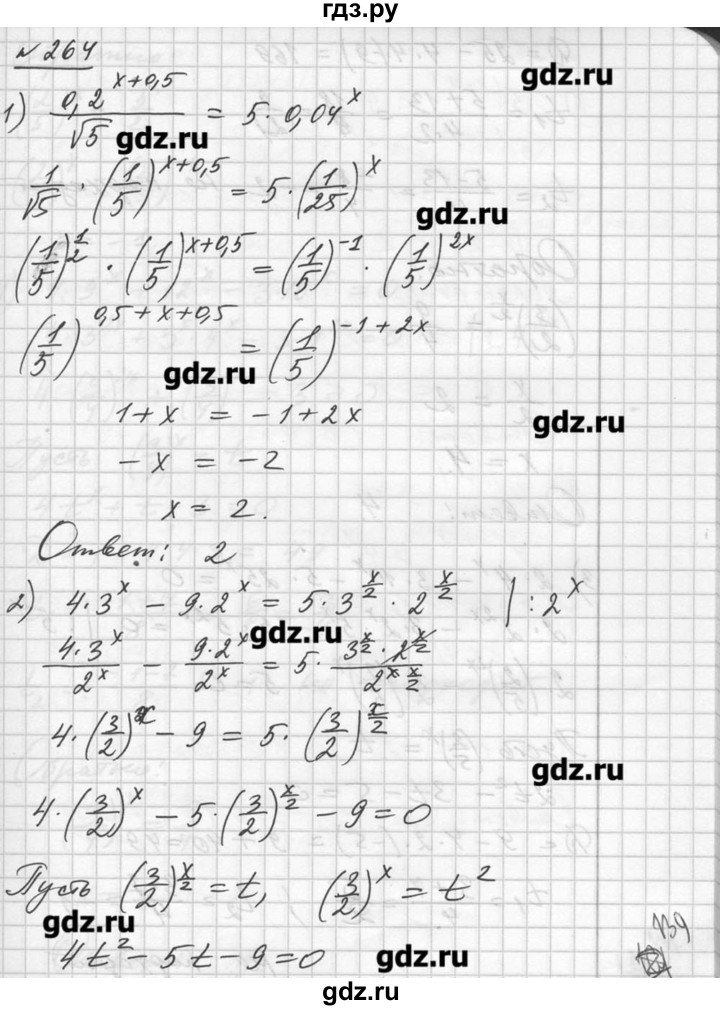 гдз.ру
№ 264
gdz.ru
1) 0,2^(x+0,5) / √5 = 5 · 0,04^x
gdz.ru
1/√5 · (1/5)^(x+0,5) = 5 · (1/25)^x
gdz.ru
(1/5)^(1/2) · (1/5)^(x+0,5) = (1/5)^(-1) · (1/5)^(2x)
(1/5)^(0,5+x+0,5) = (1/5)^(-1+2x)
gdz.ru
1+x = -1+2x
gdz.ru
-x = -2
x = 2.
Ответ: 2
2) 4·3^x - 9·2^x = 5·3^(x/2) · 2^(x/2) | : 2^x
gdz.ru
4·3^x / 2^x - 9·2^x / 2^x = 5 · 3^(x/2) · 2^(x/2) / 2^(x x/2)
4·(3/2)^x - 9 = 5·(3/2)^(x/2)
gdz.ru
4·(3/2)^x - 5·(3/2)^(x/2) - 9 = 0
Пусть (3/2)^(x/2) = t, (3/2)^x = t^2
gdz.ru
139
4t^2 - 5t - 9 = 0
gdz.ru
gdz.ru